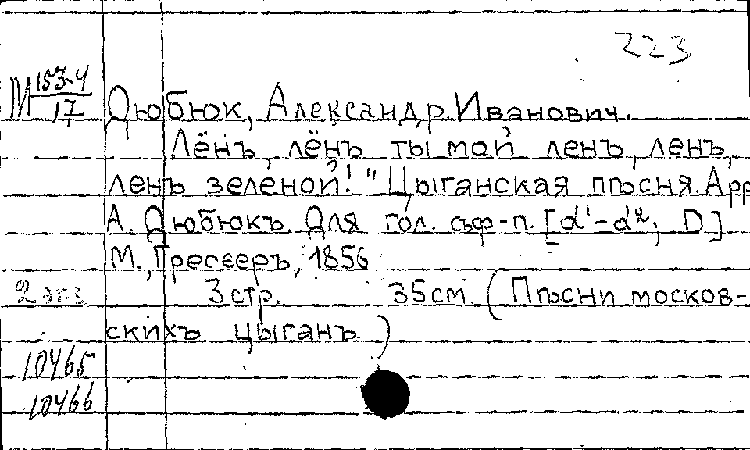 223
М 153-4
17
Дюбюк, Александр Иванович.
Лёнъ, лёнъ ты мой ленъ, ленъ,
ленъ зеленой!" Цыганская пѣсня. Арр
А. Дюбюкъ. Для гол. съ ф-п. [d¹-d², D]
М., Грессеръ, 1856
2 экз. 3 стр. 35 см (Пѣсни москов-
скихъ цыганъ)
10465
10466